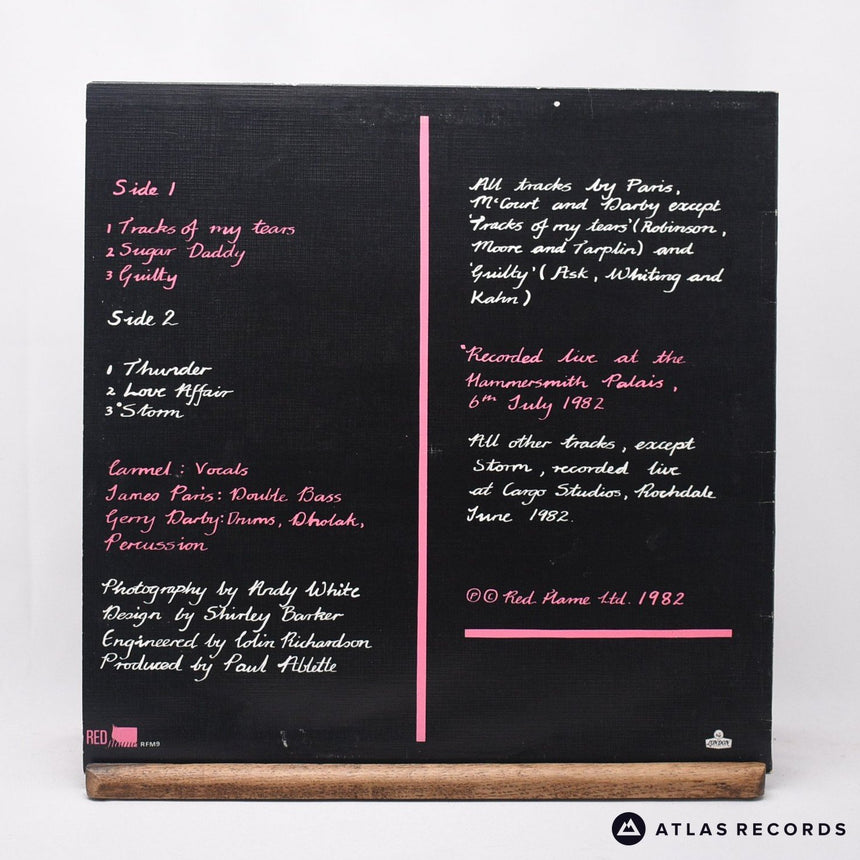 Side 1
1 Tracks of my tears
2 Sugar Daddy
3 Guilty
Side 2
1 Thunder
2 Love Affair
3 *Storm
Carmel : Vocals
James Paris: Double Bass
Gerry Darby: Drums, Dholak,
Percussion
Photography by Andy White
Design by Shirley Barker
Engineered by Colin Richardson
Produced by Paul Ablette
RED flame RFM9
All tracks by Paris,
McCourt and Darby except
'Tracks of my tears' (Robinson,
Moore and Tarplin) and
'Guilty' ( Ask, Whiting and
Kahn)
*Recorded live at the
Hammersmith Palais,
6th July 1982
All other tracks, except
Storm, recorded live
at Cargo Studios, Rochdale
June 1982.
Ⓟ © Red Flame Ltd. 1982
LONDON
ATLAS RECORDS